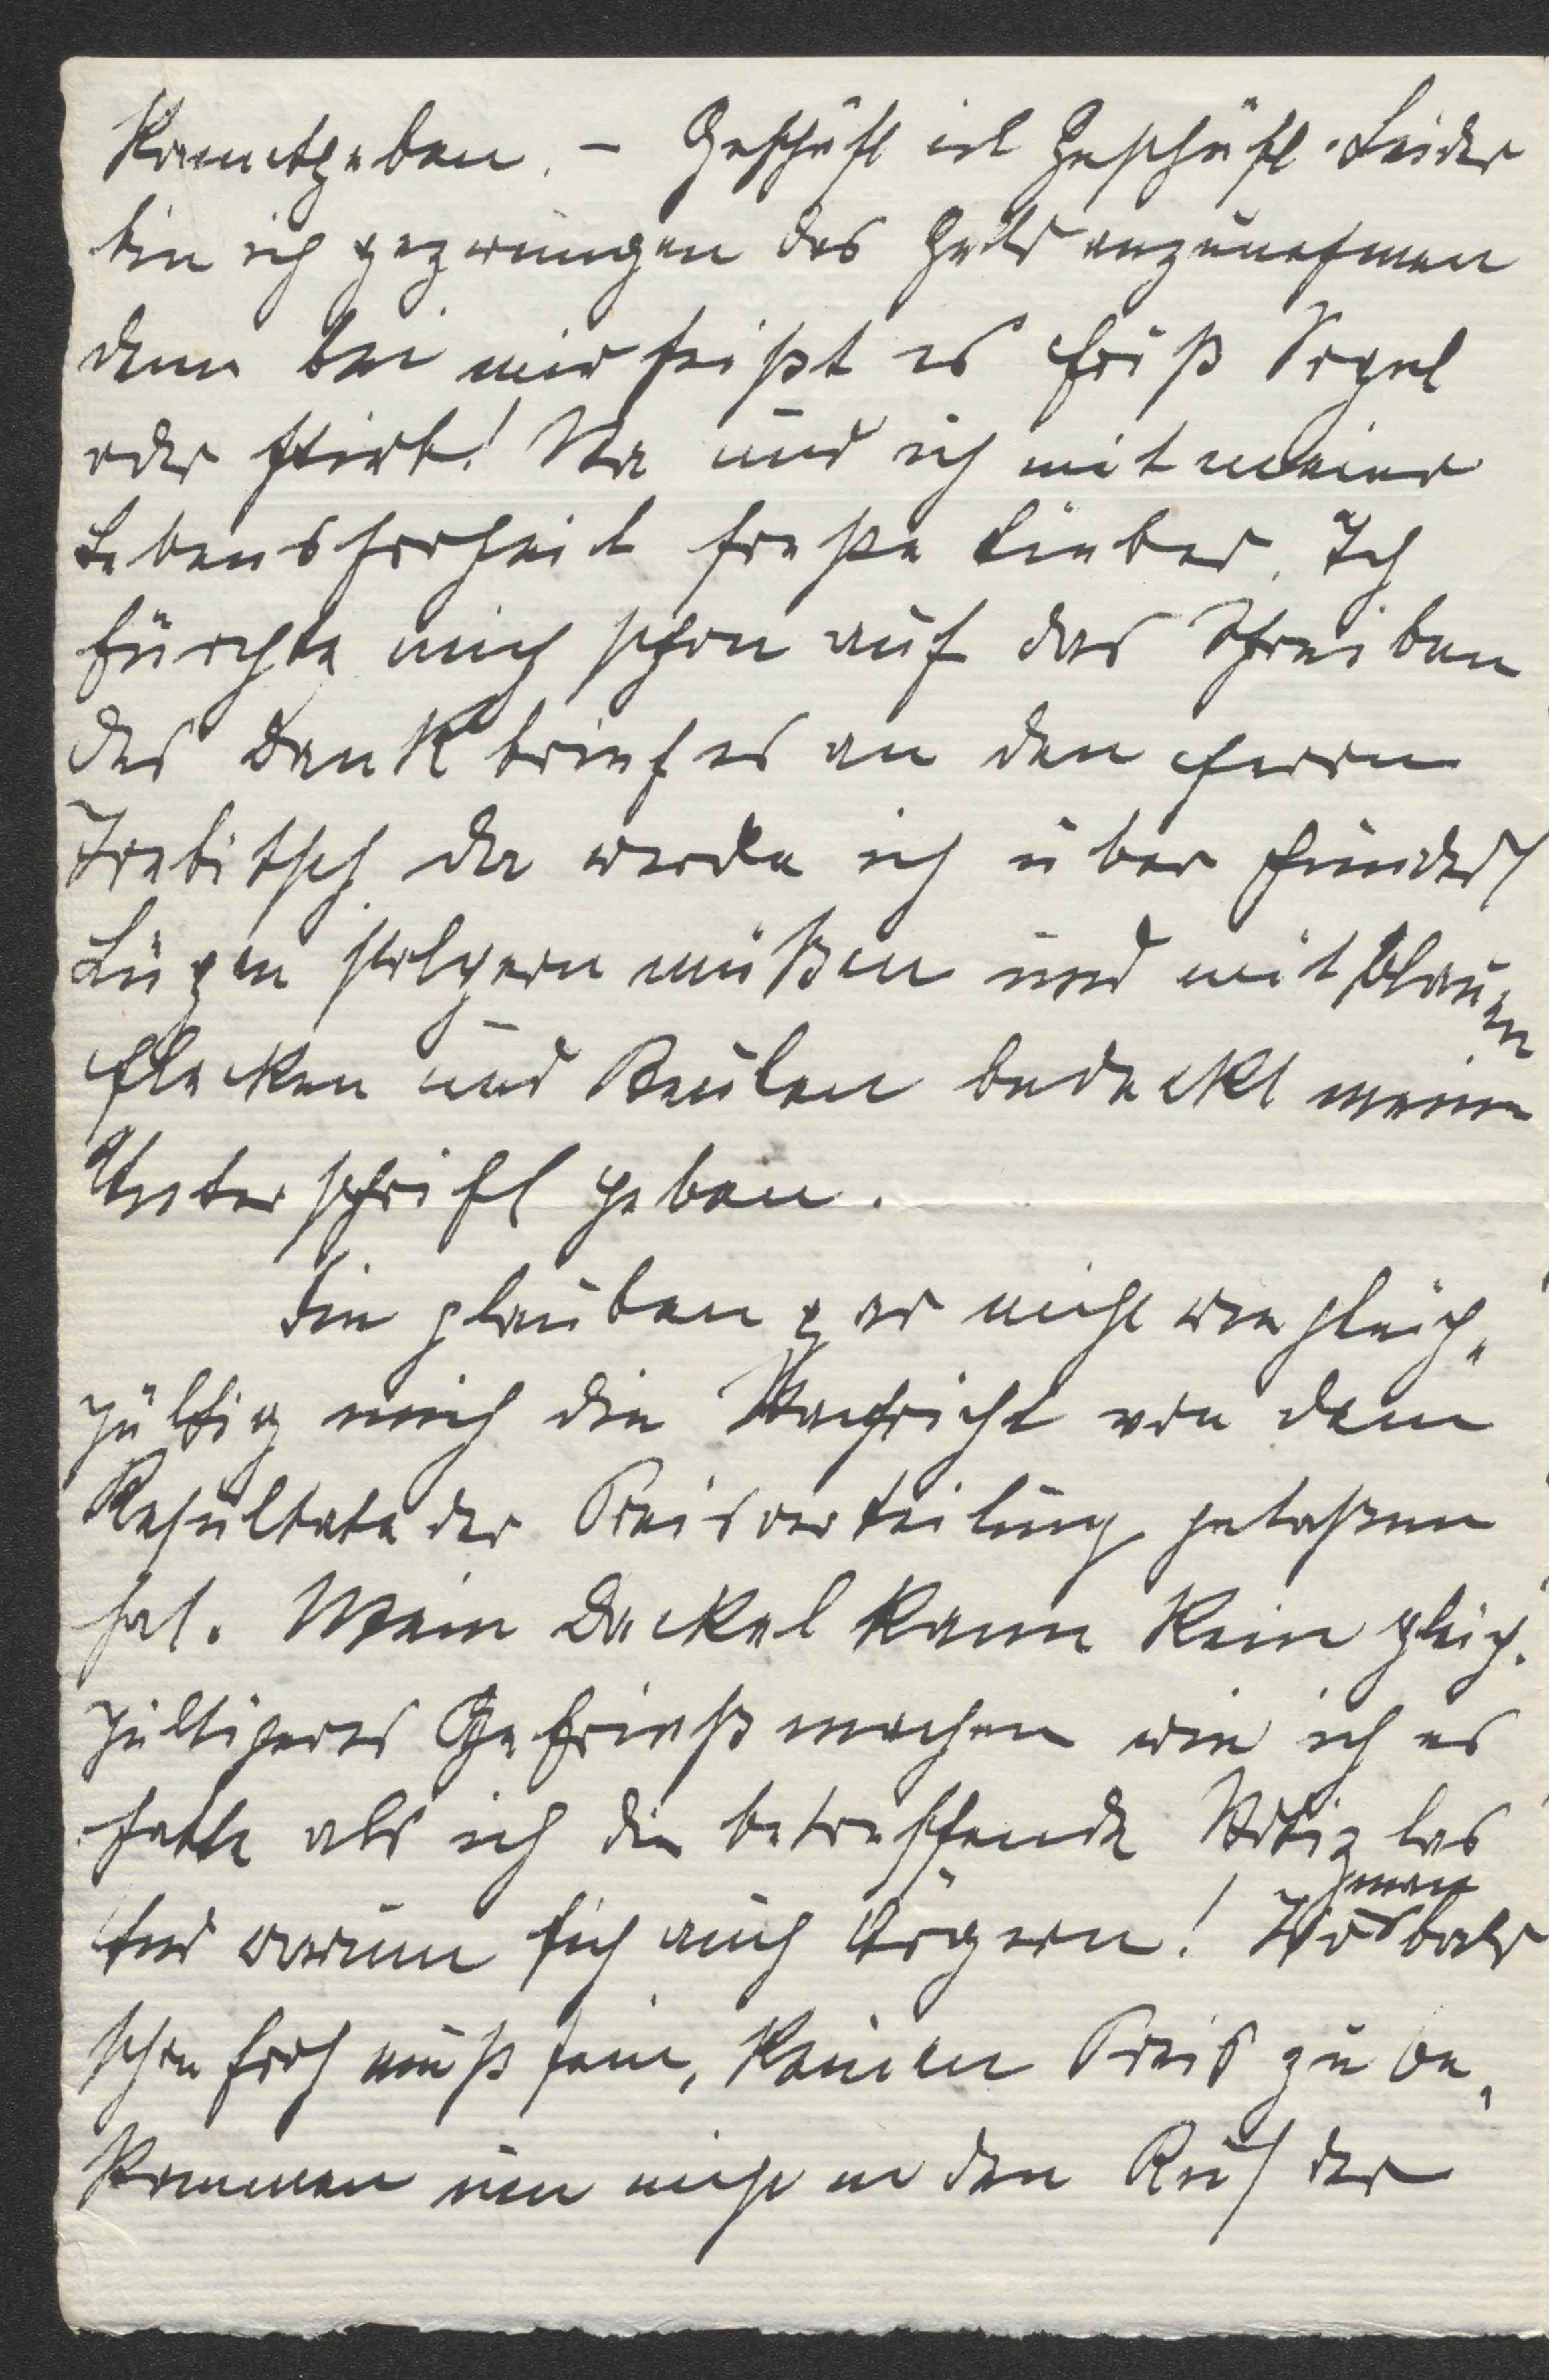 kanntgeben. – Geschäft ist Geschäft. Leider
bin ich gezwungen das Geld anzunehmen
denn bei mir heißt es friß Vogel
oder stirb! Na und ich mit meiner
Lebensfrohheit freße lieber. Ich
fürchte mich schon auf das Schreiben
des Dankbriefes an den Herrn
Trebitsch da werde ich über hundert
Lügen stolpern müßen und mit blauen
Flecken und Beulen bedeckt meine
Unterschrift geben.
Sie glauben gar nicht wie gleich„
gültig mich die Nachricht von dem
Resultate der Preisverteilung gelaßen
hat. Mein Dackel kann kein gleich.
gültigeres Gefrieß machen wie ich es
hatte als ich die betreffende Notiz las
Und warum sich auch ärgern! Wo man bald
schon froh muß sein, keinen Preis zu be„
kommen um nicht in den Ruf der